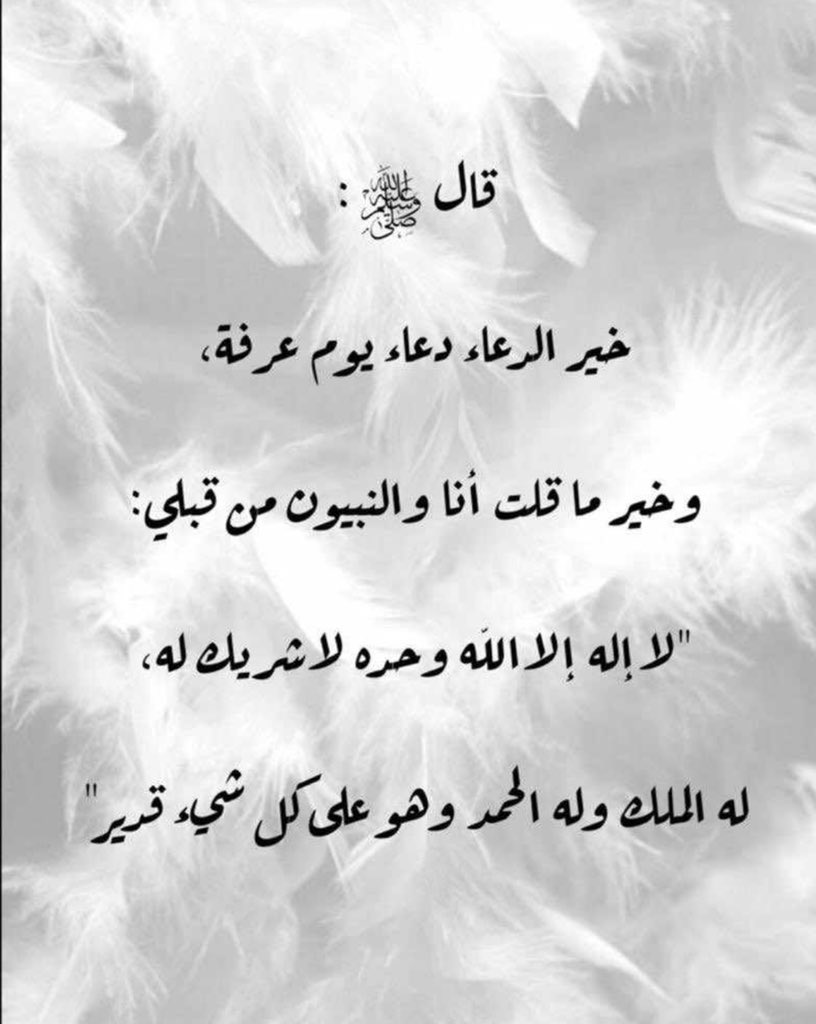 قال ﷺ :
خير الدعاء دعاء يوم عرفة،
وخير ما قلت أنا والنبيون من قبلي:
"لا إله إلا الله وحده لا شريك له،
له الملك وله الحمد وهو على كل شيء قدير"